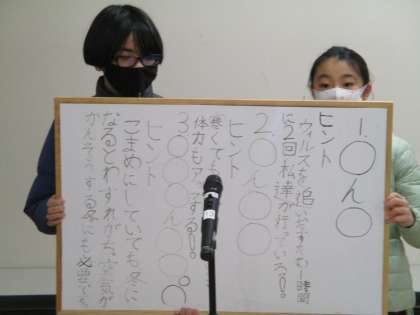 1.〇ん〇
ヒント
ウィルスを追いだすため一時間
に2回私達が行っている！。
2.〇ん〇〇
ヒント
寒くても
体力もアップする!!。
3.〇〇〇ん〇〇
ヒント
こまめにしていても冬に
なるとわすれがち。空気が
かんそうする冬にも必要です。